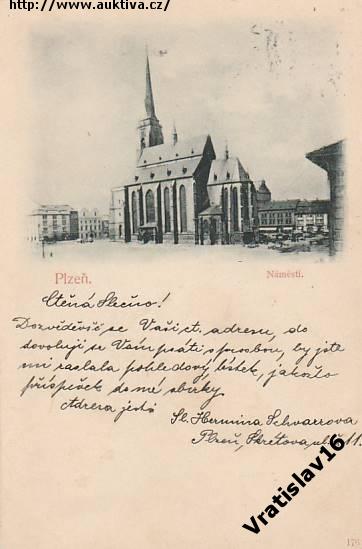 http://www.auktiva.cz/
Plzeň.
Náměstí.
Ctěná slečno!
Dozvěděvši se Vaši ct. adresu, do
voluji se Vám psáti s prosbou, by jste
mi zaslala pohledový lístek, jakožto
příspěvek do mé sbírky.
Adresa jest:
Sl. Hermina Schwarzova
Plzeň, Škrétova ulice 11.
Vratislav16
176